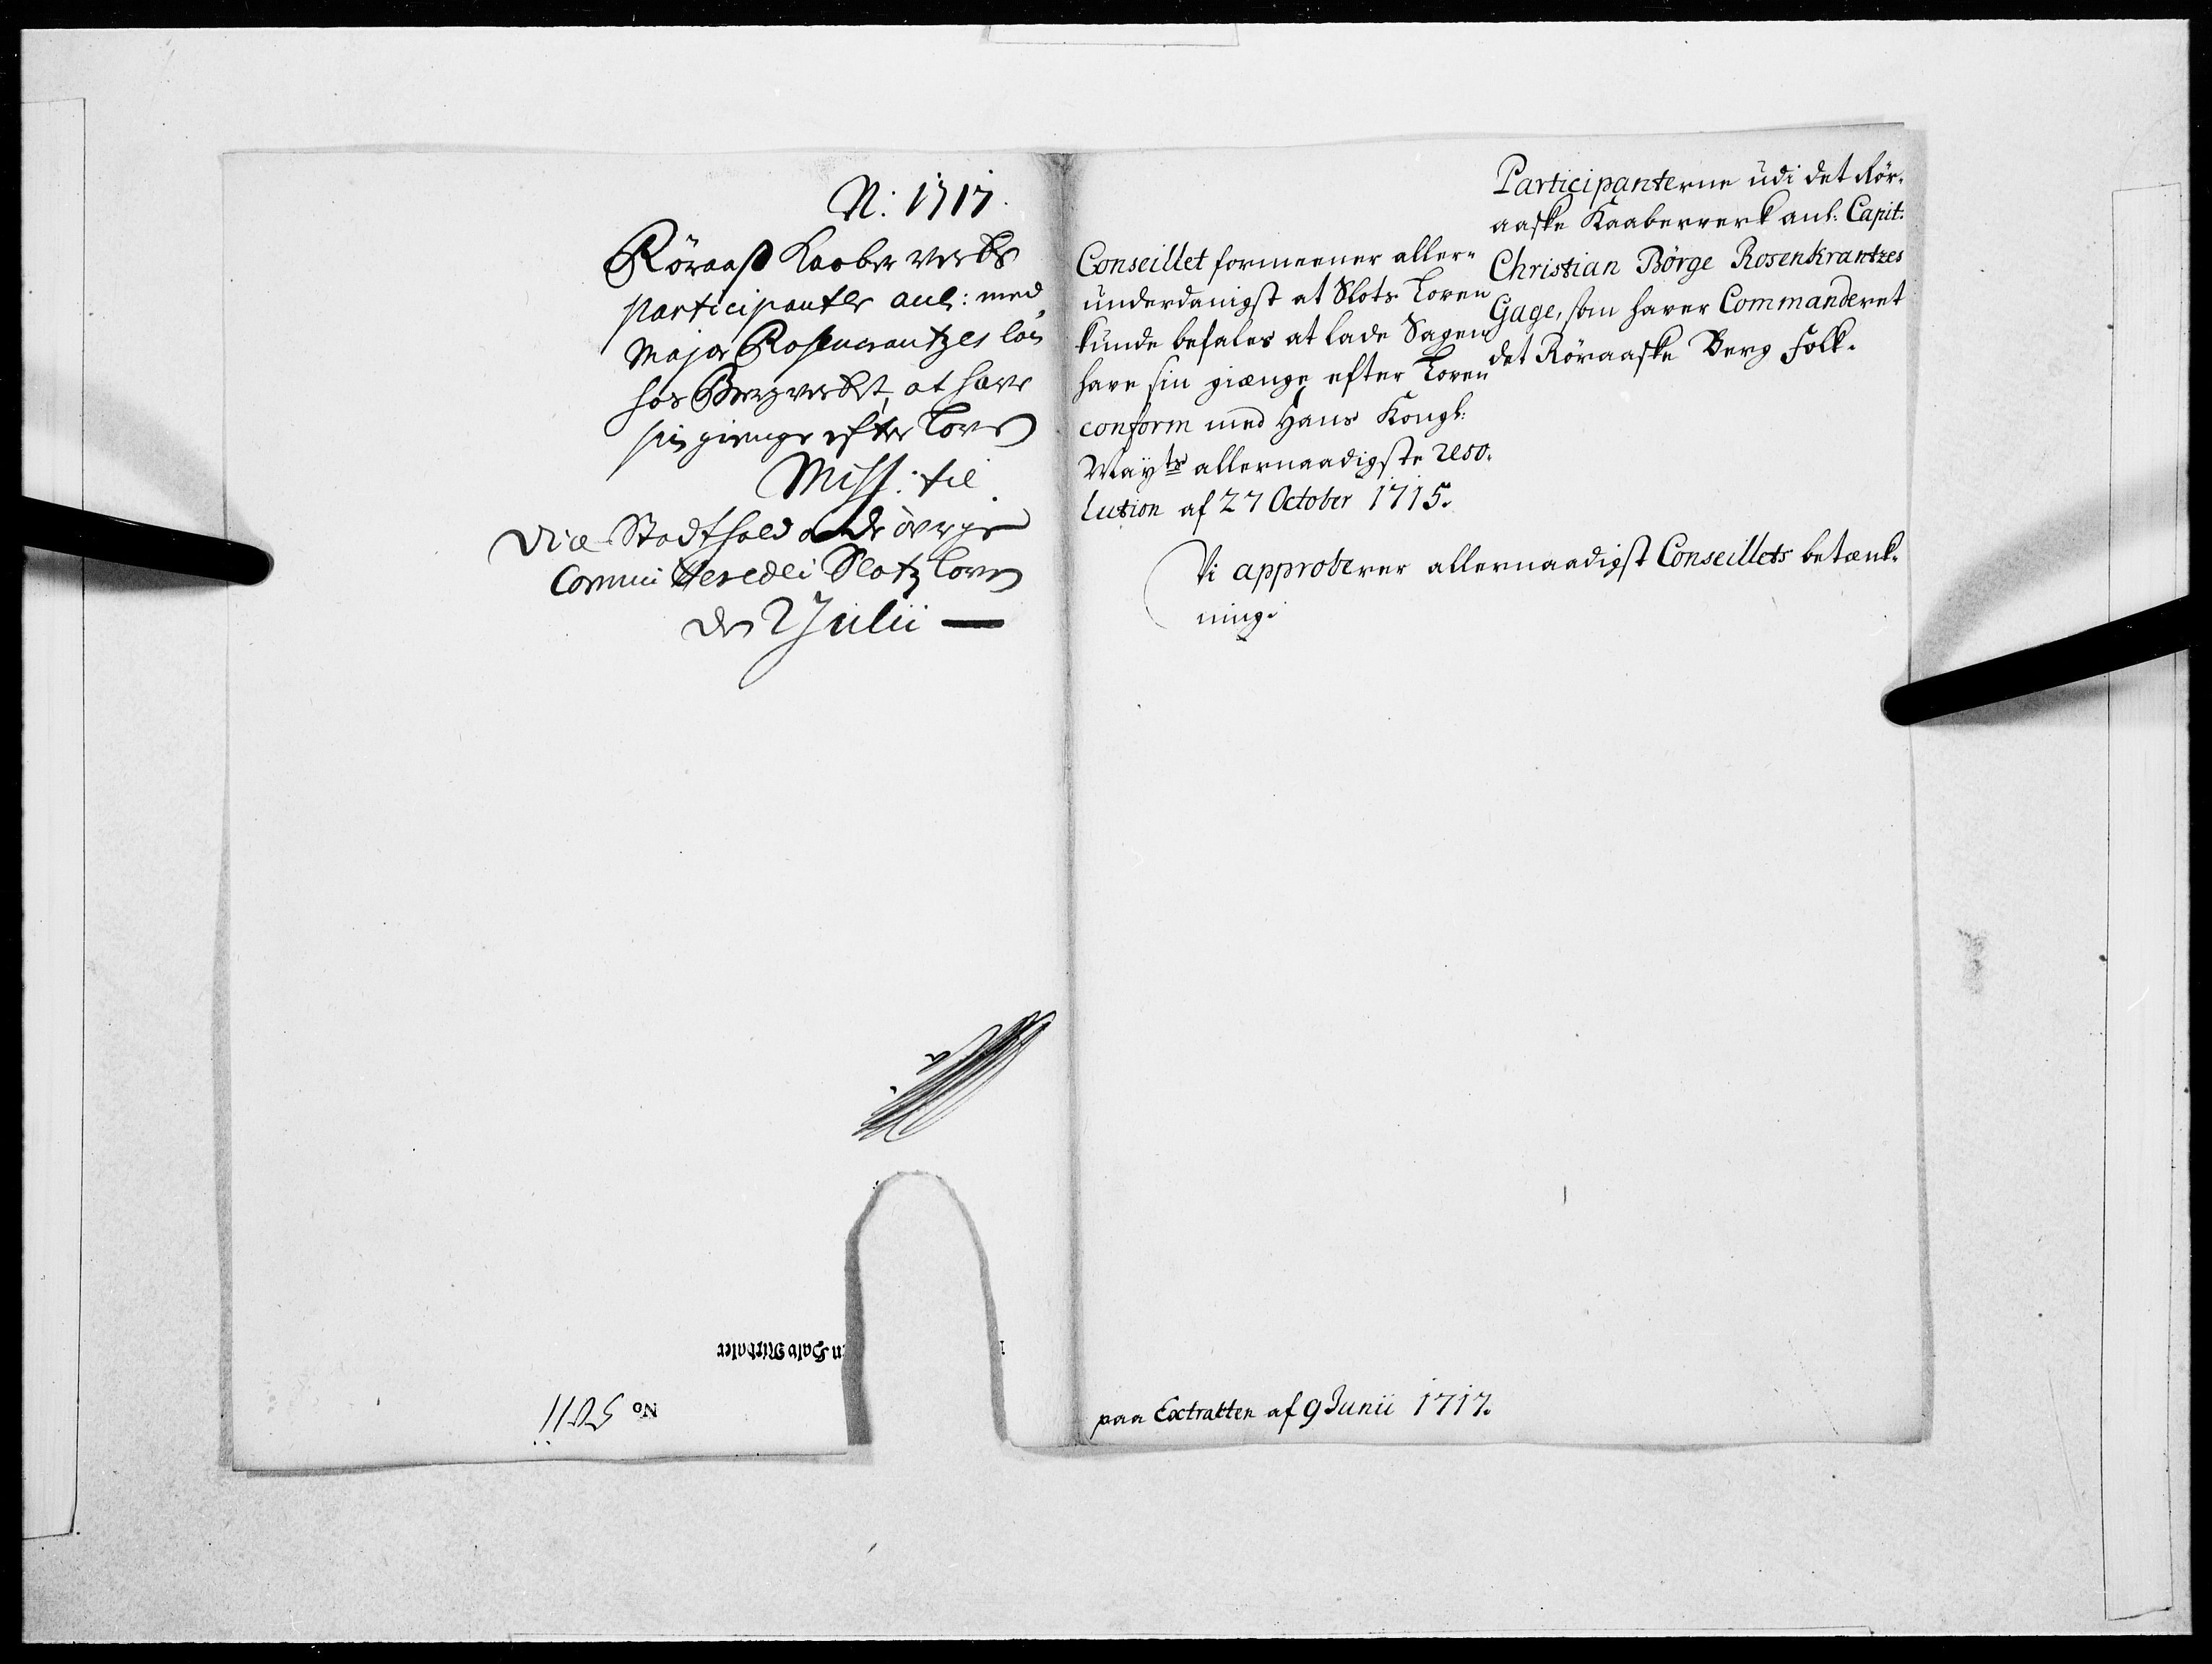 N: 1717.
Röraasß Kaaberverks
participanter anl: med
Major Rosencrantzes lön
hos Bergverket, at have
sin gienge efter loven
Miss: til
Vice Stadthold og de övrige
Commiteredei Slotz loven
den 2 Julii —
n Halv Mirkdaler
No 5011
Participanterne udi det Rör-
aaske Kaaberverk anl: Capit:
Christian Börge Rosenkrantzes
Gage, som haver Commanderet
det Röraaske Berg Folk.
Conseillet formeener aller-
underdanigst at Slots Loven
kunde befales at lade Sagen
have sin giænge efter Loven
conform med Hans Kongl:
Mayts allernaadigste reso-
lution af 27 October 1715.
Vi approberer allernaadigst Conseillets betænk-
ning.
paa Extratten af 9 Junii 1717.